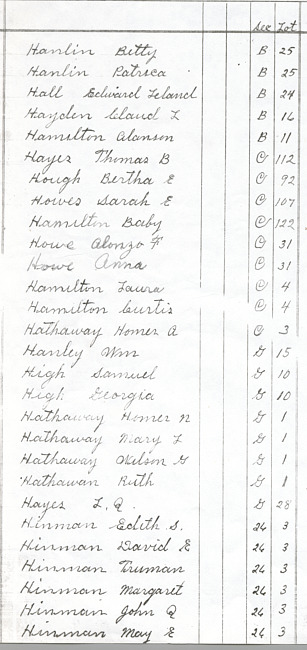 Sec Lot
Hanlin Betty B 25
Hanlin Patrica B 25
Hall Edward Leland B 24
Hayden Claud L B 16
Hamilton Alanson B 11
Hayes Thomas B C 112
Hough Bertha E C 92
Howes Sarah E C 107
Hamilton Baby C 122
Howe Alonzo F C 31
Howe Anna C 31
Hamilton Laura C 4
Hamilton Curtis C 4
Hathaway Homer A C 3
Hanley Wm G 15
High Samuel G 10
High Georgia G 10
Hathaway Homer N G 1
Hathaway Mary L G 1
Hathaway Wilson G G 1
Hathawan Ruth G 1
Hayes L. Q. G 28
Hinman Edith S. 24 3
Hinman David E 24 3
Hinman Truman 24 3
Hinman Margaret 24 3
Hinman John Q 24 3
Hinman May E 24 3